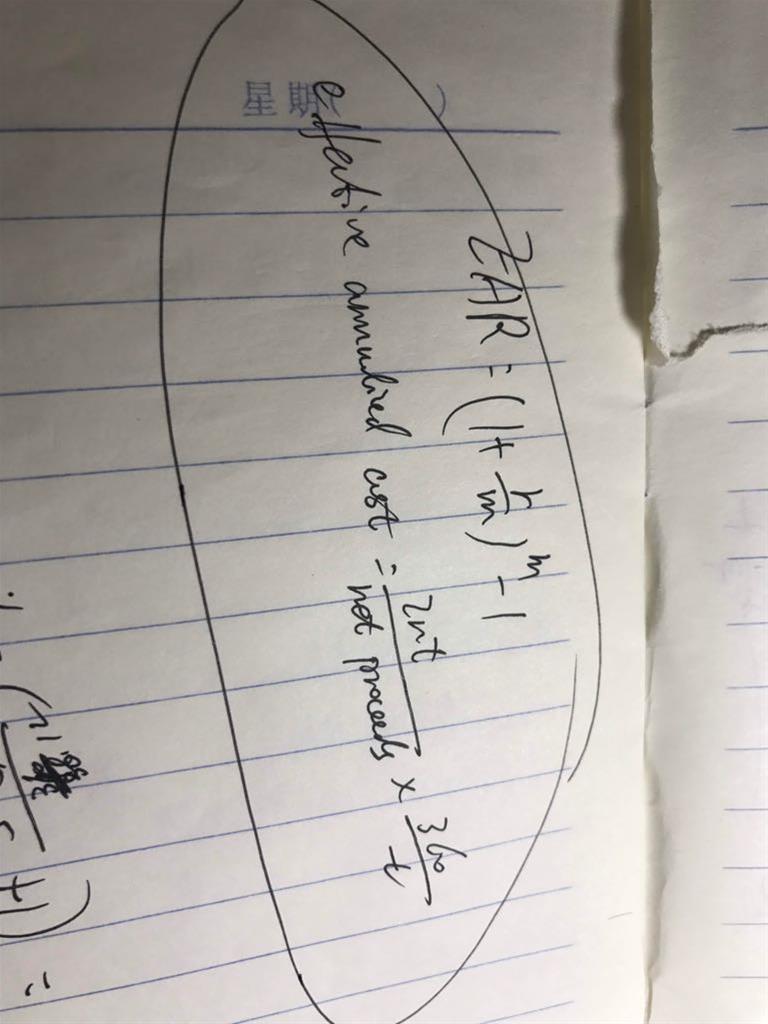 星期
EAR = (1 + r/m)^m - 1
effective annualized cost = Int/net proceeds × 360/t
+1) =